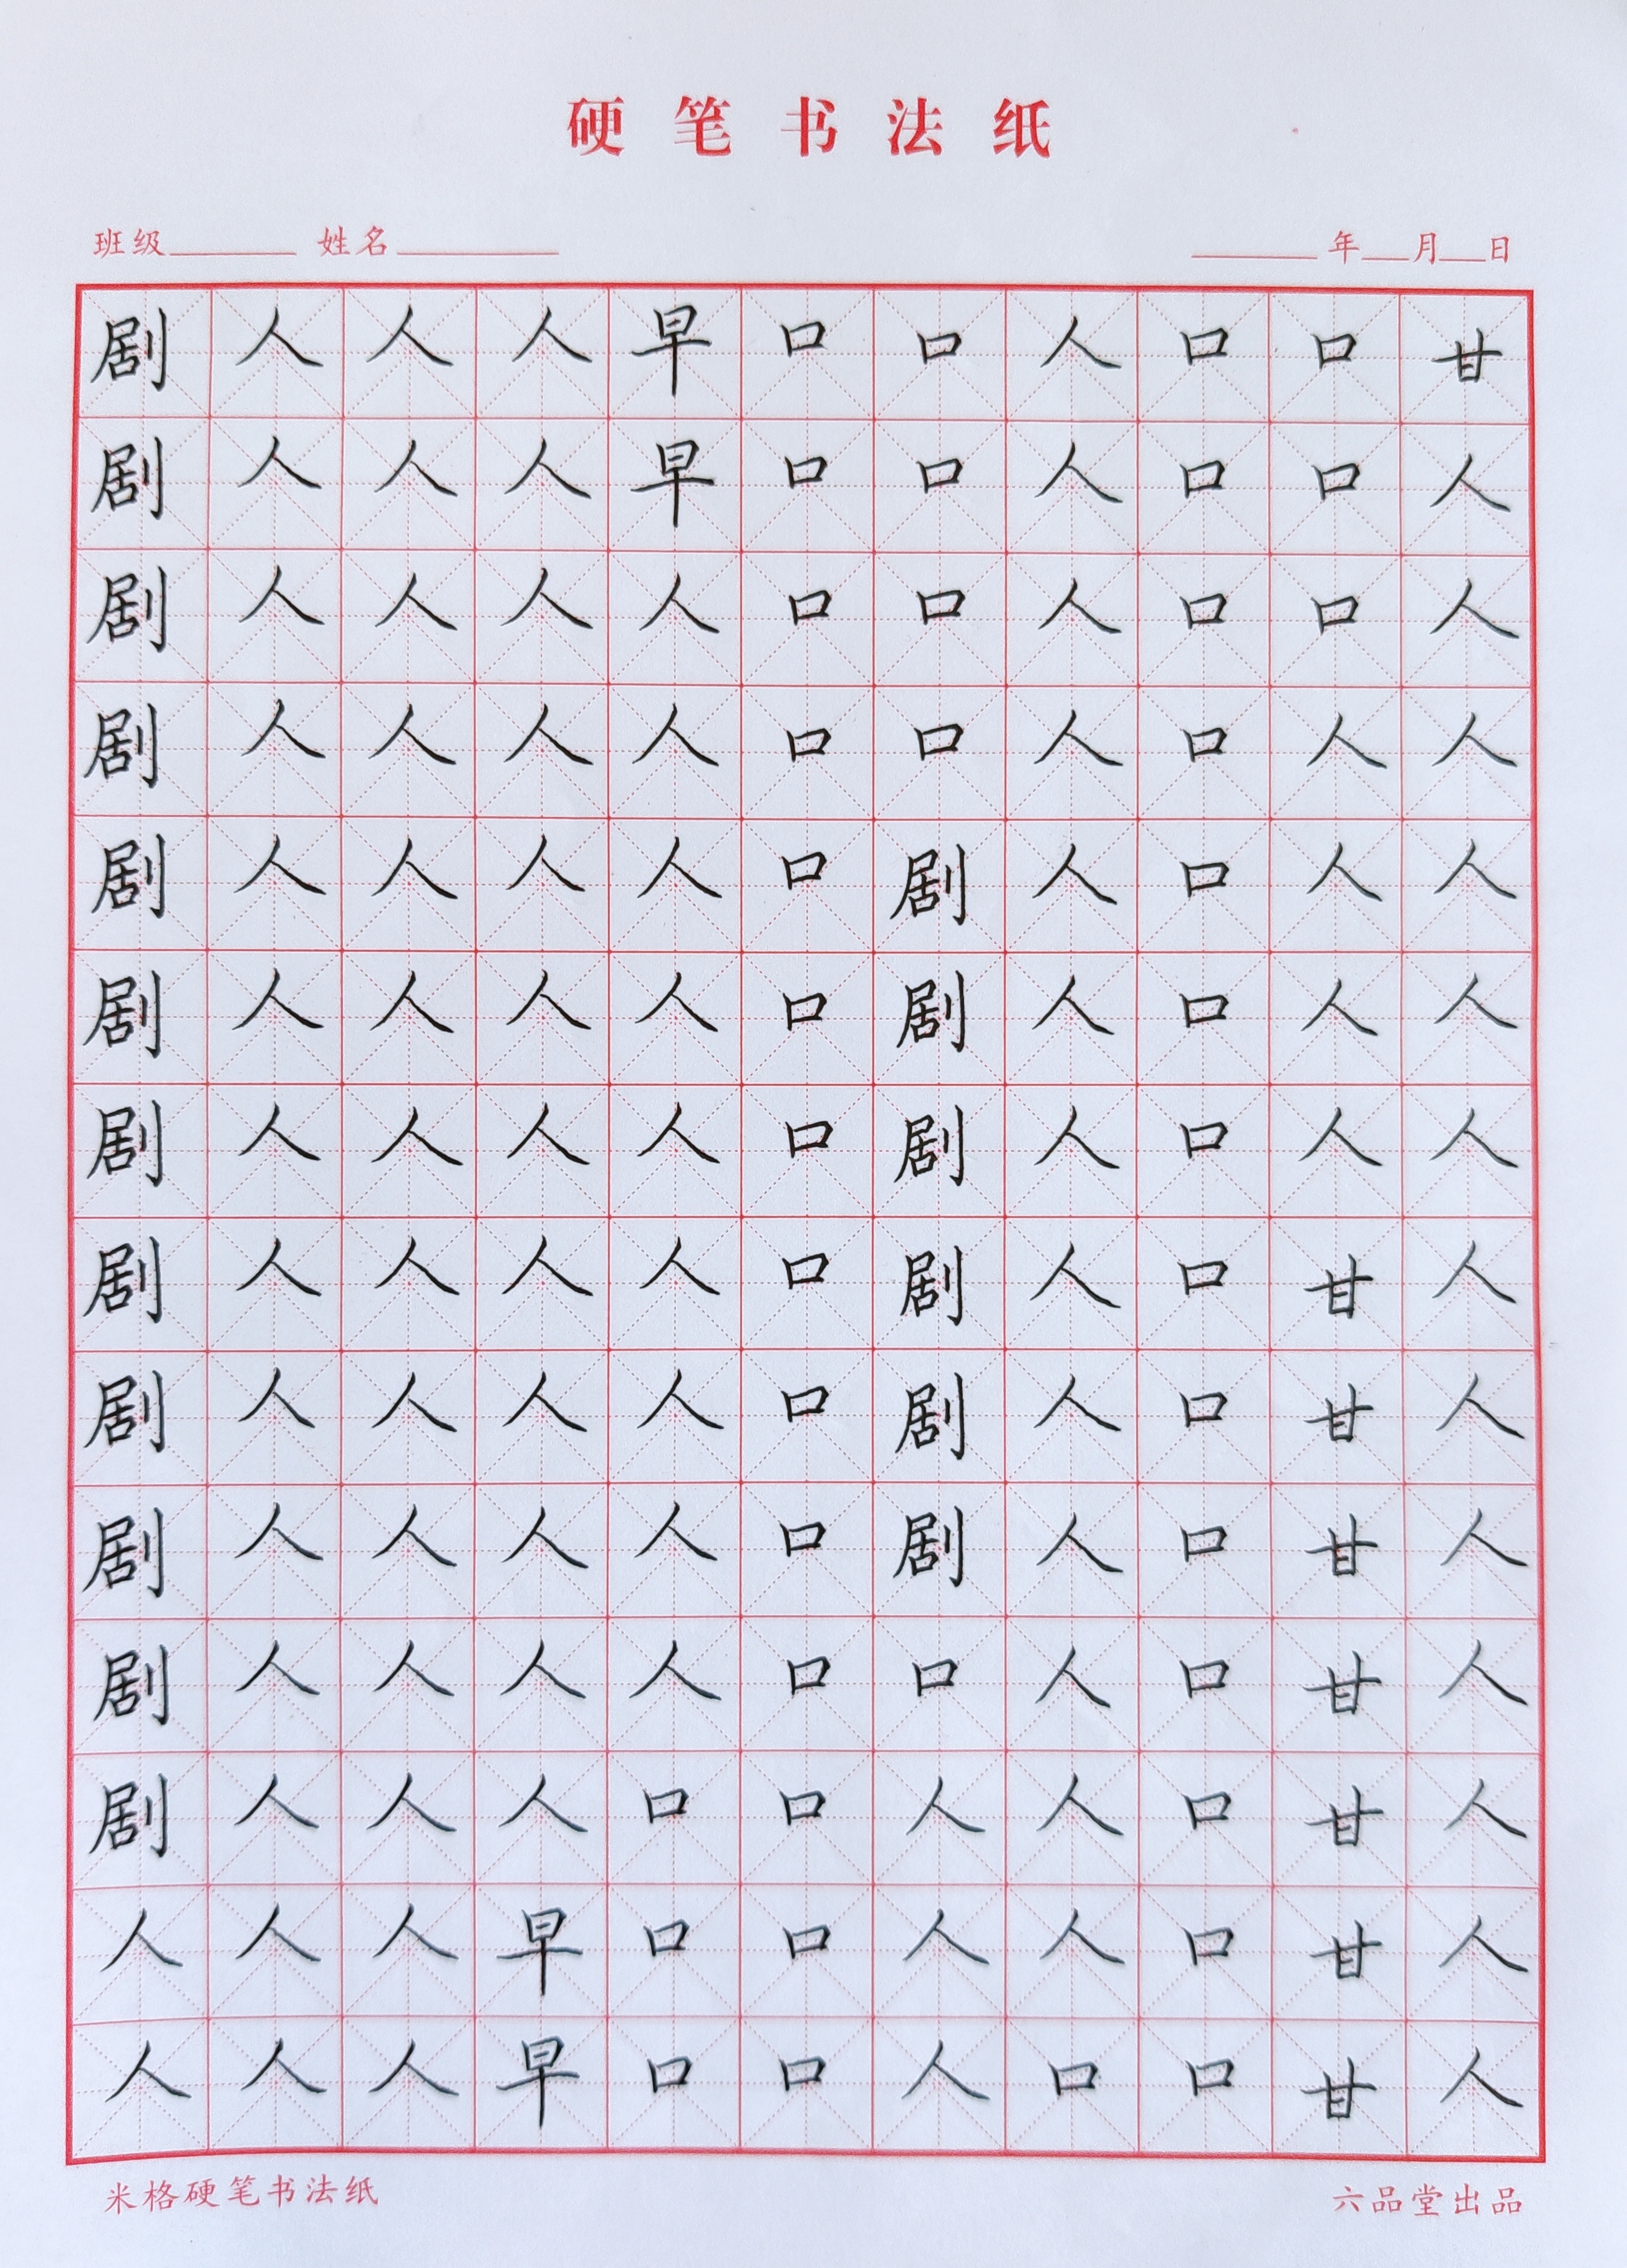 硬笔书法纸
班级 姓名 年 月 日
剧人人人早口口人口口甘
剧人人人早口口人口口人
剧人人人人口口人口口人
剧人人人人口口人口人人
剧人人人人口剧人口人人
剧人人人人口剧人口人人
剧人人人人口剧人口人人
剧人人人人口剧人口甘人
剧人人人人口剧人口甘人
剧人人人人口剧人口甘人
剧人人人人口口人口甘人
剧人人人口口人人口甘人
人人人早口口人人口甘人
人人人早口口人口口甘人
米格硬笔书法纸 六品堂出品